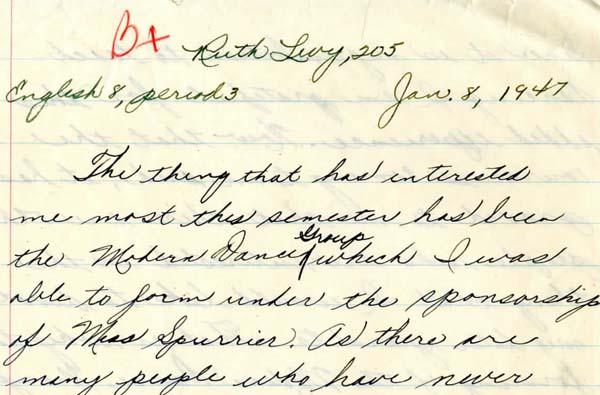 B+
Ruth Levy, 205
English 8, period 3 Jan. 8, 1947
The thing that has interested
me most this semester has been
the Modern Dance Group which I was
able to form under the sponsorship
of Miss Spurrier. As there are
many people who have never